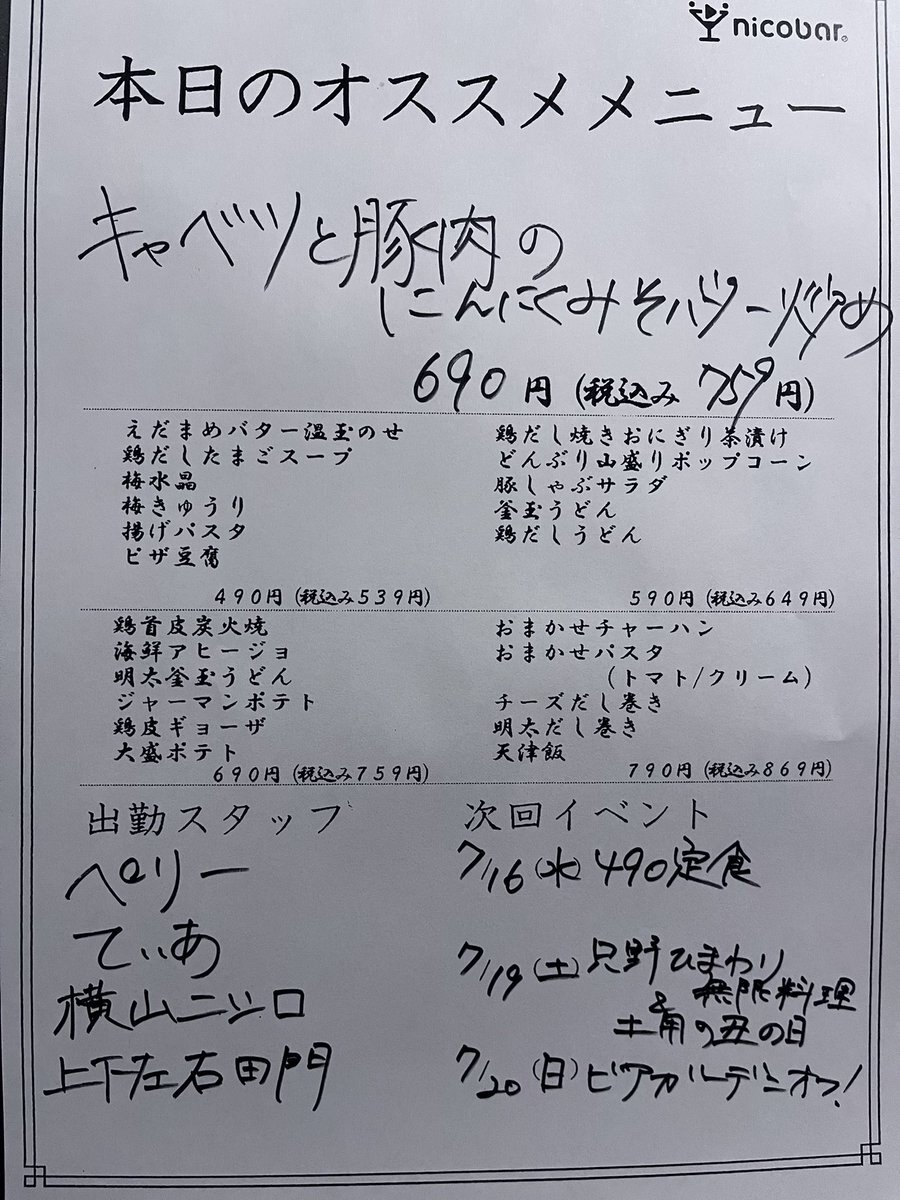 nicobar
本日のオススメメニュー
キャベツと豚肉の
にんにくみそバター炒め
690円(税込み 759円)
えだまめバター温玉のせ
鶏だしたまごスープ
梅水晶
梅きゅうり
揚げパスタ
ピザ豆腐
490円(税込み539円)
鶏だし焼きおにぎり茶漬け
どんぶり山盛りポップコーン
豚しゃぶサラダ
釜玉うどん
鶏だしうどん
590円(税込み649円)
鶏首皮炭火焼
海鮮アヒージョ
明太釜玉うどん
ジャーマンポテト
鶏皮ギョーザ
大盛ポテト
690円(税込み759円)
おまかせチャーハン
おまかせパスタ
(トマト/クリーム)
チーズだし巻き
明太だし巻き
天津飯
790円(税込み869円)
出勤スタッフ
ペリー
てぃあ
横山ニシロ
上下左右田門
次回イベント
7/16(水)490定食
7/19(土)只野ひまわり
無限料理
&
土用の丑の日
7/20(日)ビアガーデンオフ!